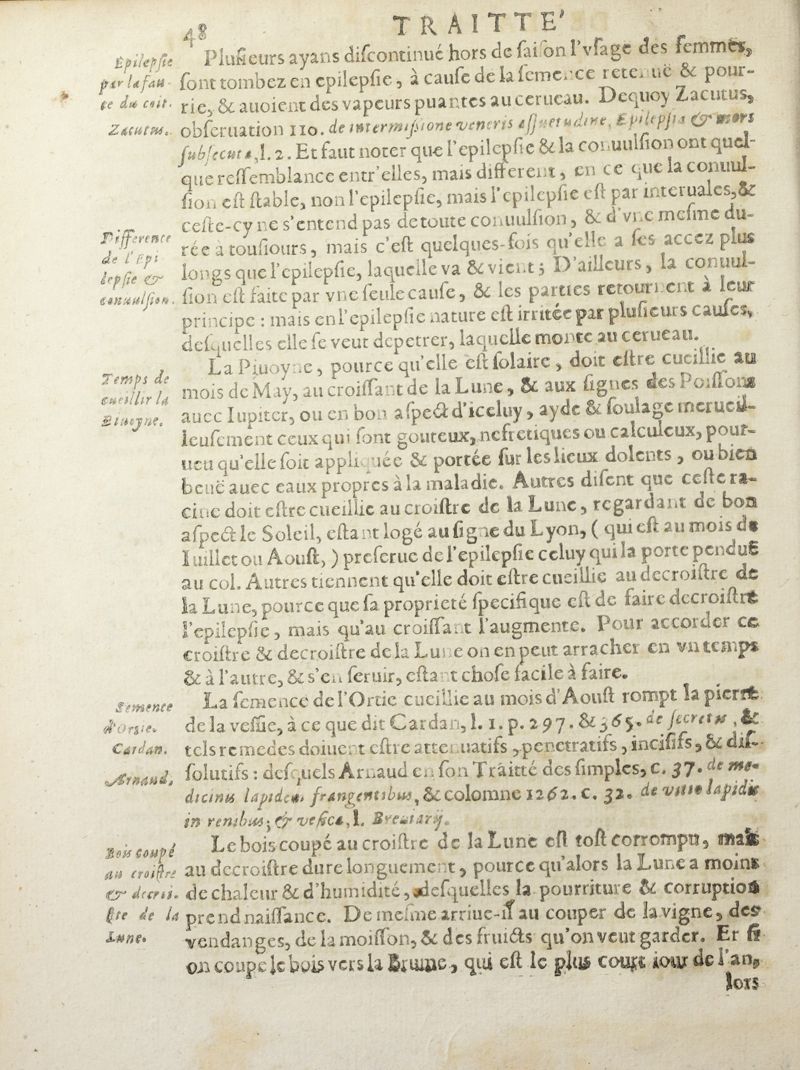 48
TRAITTE'
Epilepsie
par la fau-
te du coit.
Zacutus.
Plusieurs ayans discontinué hors de saison l'vsage des femmes,
sont tombez en epilepsie, à cause de la semence retenuë & pour-
rie, & auoient des vapeurs puantes au cerueau. Dequoy Zacutus,
obseruation 110. de intermissione veneris assuetudine, Epilepsia & mors
subsecuta, l. 2. Et faut noter que l'epilepsie & la conuulsion ont quel-
que ressemblance entr'elles, mais different, en ce que la conuul-
sion est stable, non l'epilepsie, mais l'epilepsie est par interuales, &
Difference
de l'Epi
lepsie &
conuulsion.
ceste-cy ne s'entend pas de toute conuulsion, & d'vne mesme du-
rée à tousiours, mais c'est quelques-fois qu'elle a ses accez plus
longs que l'epilepsie, laquelle va & vient; D'ailleurs, la conuul-
sion est faite par vne seule cause, & les parties retournent à leur
principe : mais en l'epilepsie nature est irritée par plusieurs causes,
desquelles elle se veut depetrer, laquelle monte au cerueau.
Temps de
cueillir la
Piuoyne.
La Piuoyne, pource qu'elle est solaire, doit estre cueillie au
mois de May, au croissant de la Lune, & aux signes des Poissons
auec Iupiter, ou en bon aspect d'iceluy, ayde & soulage merueil-
leusement ceux qui sont gouteux, nefretiques ou calculeux, pour-
ueu qu'elle soit appliquée & portée sur les lieux dolents, ou bien
beuë auec eaux propres à la maladie. Autres disent que ceste ra-
cine doit estre cueillie au croistre de la Lune, regardant de bon
aspect le Soleil, estant logé au signe du Lyon, ( qui est au mois de
Iuillet ou Aoust, ) preserue de l'epilepsie celuy qui la porte penduë
au col. Autres tiennent qu'elle doit estre cueillie au decroistre de
la Lune, pource que sa proprieté specifique est de faire decroistre
l'epilepsie, mais qu'au croissant l'augmente. Pour accorder ce
croistre & decroistre de la Lune on en peut arracher en vn temps
& à l'autre, & s'en seruir, estant chose facile à faire.
Semence
d'Ortie.
Cardan.
Arnaud.
La semence de l'Ortie cueillie au mois d'Aoust rompt la pierre
de la vessie, à ce que dit Cardan, l. 1. p. 297. & 365. de secretis, &
tels remedes doiuent estre attenuatifs, penetratifs, incisifs, & dis-
solutifs : desquels Arnaud en son Traitté des simples, c. 37. de me-
dicinis lapidem frangentibus, & colomne 1262. c. 32. de vitio lapidis
in renibus, & vesica, l. Breuiarij.
Bois coupé
au croistre
& decroi-
stre de la
Lune.
Le bois coupé au croistre de la Lune est tost corrompu, mais
au decroistre dure longuement, pource qu'alors la Lune a moins
de chaleur & d'humidité, desquelles la pourriture & corruption
prend naissance. De mesme arriue-il au couper de la vigne, des
vendanges, de la moisson, & des fruicts qu'on veut garder. Et si
on coupe le bois vers la Brume, qui est le plus court iour de l'an,
lors